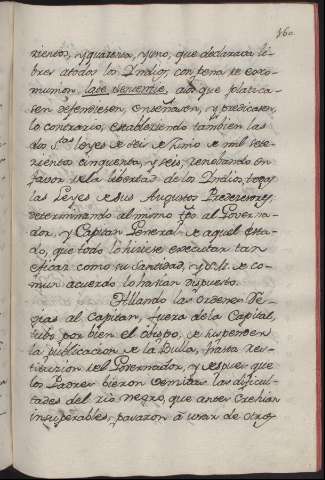 160
zientos, y quarenta, y uno, que declarava li-
bres atodos los Indios, con pena de exco-
munion, late sententie, alos que platica-
sen defendiesen, enseñasen, y predicasen,
lo contrario, estableciendo tambien las
dos leyes de seis de Junio de mil sete-
zientos cinquenta, y seis, renobando en
favor de la libertad de los Indios, todas
las Leyes de sus Augustos Predezesores,
determinando al mismo tpo al Governa-
dor, y Capitan General de aquel Esta-
do, que todo lo hiziese executar tan
eficaz como su Santidad, y S. M. de co-
mun acuerdo lo havian dispuesto.
Allando las ordenes Re-
gias al Capitan, fuera de la Capital,
tubo por bien el obispo, de suspender
la publicacion de la Bulla, hasta res-
titucion del Governador, y despues que
los Padres vieron cemitar las dificul-
tades del rio negro, que antes crehian
insuperables, pasaron á usar de otros